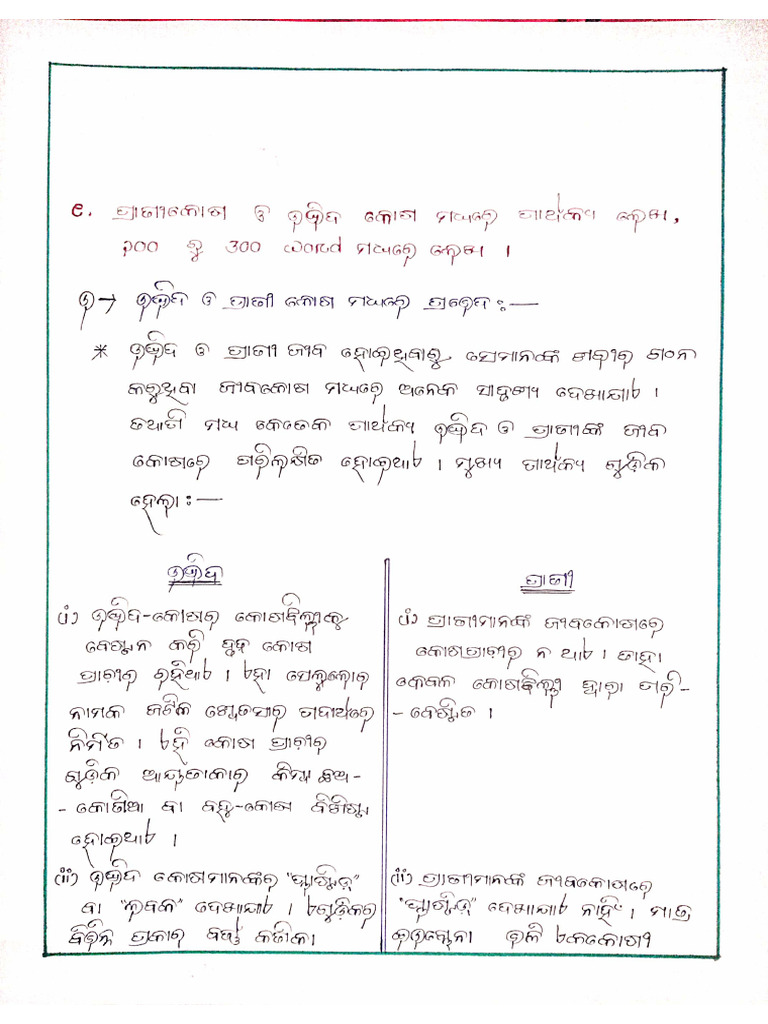 ୧. ପ୍ରାଣୀକୋଷ ଓ ଉଦ୍ଭିଦ କୋଷ ମଧ୍ୟରେ ପାର୍ଥକ୍ୟ ଲେଖ,
200 ରୁ 300 word ମଧ୍ୟରେ ଲେଖ ।
ଉ→ ଉଦ୍ଭିଦ ଓ ପ୍ରାଣୀ କୋଷ ମଧ୍ୟରେ ପ୍ରଭେଦ :—
* ଉଦ୍ଭିଦ ଓ ପ୍ରାଣୀ ଜୀବ ହୋଇଥିବାରୁ ସେମାନଙ୍କ ଶରୀର ଗଠନ
କରୁଥିବା ଜୀବକୋଷ ମଧ୍ୟରେ ଅନେକ ସାଦୃଶ୍ୟ ଦେଖାଯାଏ ।
ତଥାପି ମଧ୍ୟ କେତେକ ପାର୍ଥକ୍ୟ ଉଦ୍ଭିଦ ଓ ପ୍ରାଣୀଙ୍କ ଜୀବ
କୋଷରେ ପରିଲକ୍ଷିତ ହୋଇଥାଏ । ମୁଖ୍ୟ ପାର୍ଥକ୍ୟ ଗୁଡ଼ିକ
ହେଲା :—
ଉଦ୍ଭିଦ
(i) ଉଦ୍ଭିଦ-କୋଷର କୋଷଝିଲ୍ଲୀକୁ
ବେଷ୍ଟନ କରି ଦୃଢ଼ କୋଷ
ପ୍ରାଚୀର ରହିଥାଏ । ଏହା ସେଲୁଲୋଜ
ନାମକ ଜଟିଳ ଶ୍ୱେତସାର ପଦାର୍ଥରେ
ନିର୍ମିତ । ଏହି କୋଷ ପ୍ରାଚୀର
ଗୁଡ଼ିକ ଆୟତାକାର କିମ୍ବା ଛଅ-
-କୋଣିଆ ବା ବହୁ-କୋଣ ବିଶିଷ୍ଟ
ହୋଇଥାଏ ।
(ii) ଉଦ୍ଭିଦ କୋଷମାନଙ୍କର "ପ୍ଲାଷ୍ଟିଡ୍"
ବା "ଲବକ" ଦେଖାଯାଏ । ଏଗୁଡ଼ିକର
ବିଭିନ୍ନ ପ୍ରକାର ବର୍ଣ୍ଣ କଣିକା
ପ୍ରାଣୀ
(i) ପ୍ରାଣୀମାନଙ୍କ ଜୀବକୋଷରେ
କୋଷପ୍ରାଚୀର ନ ଥାଏ । ତାହା
କେବଳ କୋଷଝିଲ୍ଲୀ ଦ୍ୱାରା ପରି-
-ବେଷ୍ଟିତ ।
(ii) ପ୍ରାଣୀମାନଙ୍କ ଜୀବକୋଷରେ
"ପ୍ଲାଷ୍ଟିଡ୍" ଦେଖାଯାଏ ନାହିଁ । ମାତ୍ର
ଇଉଗ୍ଲେନା ଭଳି ଏକକୋଷୀ